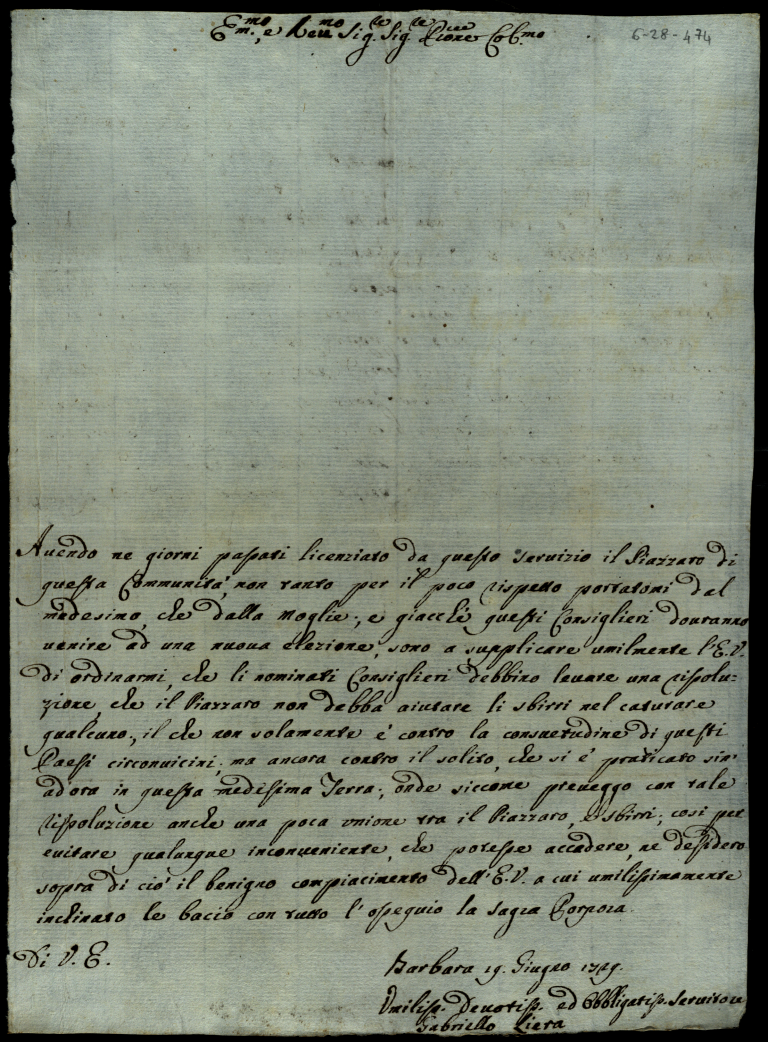 Em.mo, e Reu.mo Sig.re Sig.re Pĩone Col.mo
6-28-474
Auendo ne giorni passati licenziato da questo seruizio il Piazzaro di
questa Communità, non tanto per il poco rispetto portatomi dal
medesimo, che dalla moglie, e giacché questi Consiglieri douranno
uenire ad una nuoua elezione, sono a supplicare umilmente l'E.V.
di ordinarmi, che li nominati Consiglieri debbino leuare una risolu-
zione, che il Piazzaro non debba aiutare li sbirri nel catturare
qualcuno, il che non solamente è contro la consuetudine di questi
Paesi circonuicini, ma ancora contro il solito, che si è praticato sin'
ad'ora in questa medesima Terra, onde siccome preueggo con tale
risoluzione anche una poca unione tra il Piazzaro, e sbirri, così per
euitare qualunque inconueniente, che potesse accadere, ne desidero
sopra di ciò il benigno compiacimento dell'E.V. a cui umilissimamente
inclinato le bacio con tutto l'ossequio la sagra Porpora.
Di V.E.
Barbara 19. Giugno 1729.
Vmiliss. Deuotiss. ed Obbligatiss. Seruitore
Gabriello Lieta